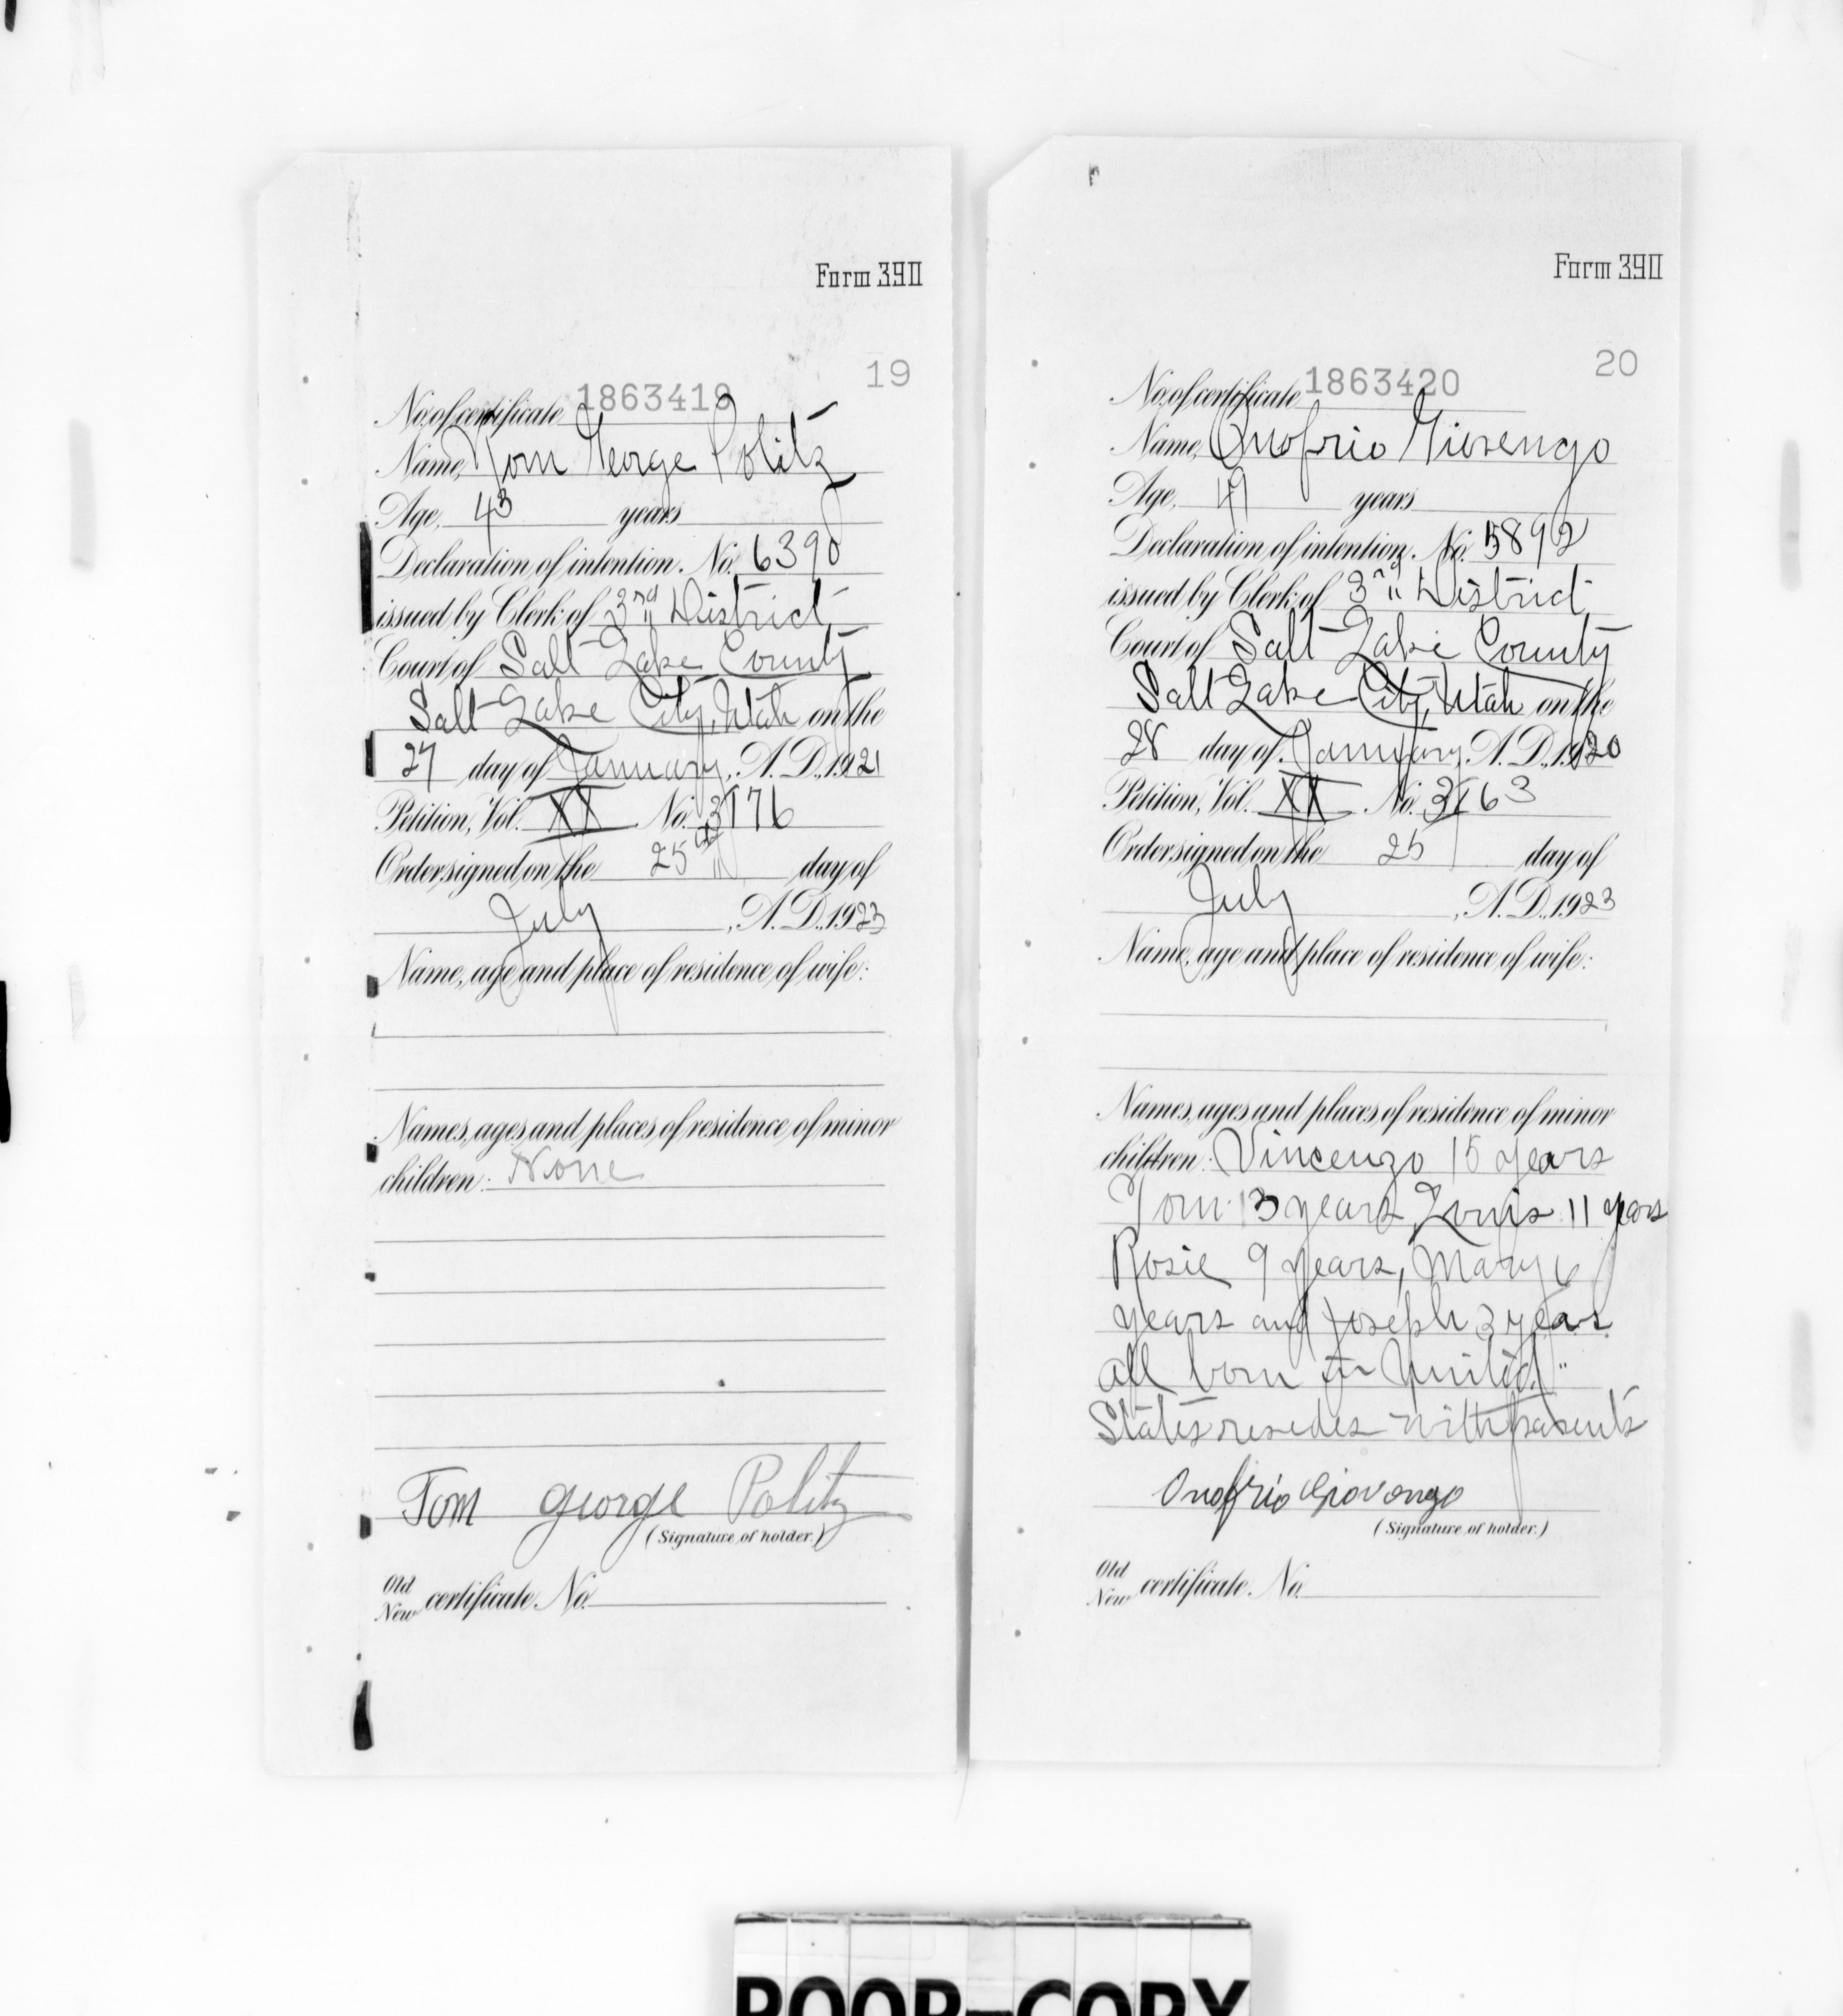 Form 390
19
No. of certificate 1863419
Name, Tom George Politz
Age, 43 years
Declaration of intention. No. 6390
issued by Clerk of 3rd " District
Court of Salt Lake County
Salt Lake City, Utah on the
27 day of January, A. D., 1921
Petition, Vol. XX No. 3176
Order signed on the 25 day of
July, A. D., 1923
Name, age and place of residence of wife:
Names, ages and places of residence of minor
children: None
Tom george Politz
(Signature of holder.)
Old
New certificate No.
Form 390
20
No. of certificate 1863420
Name, Onofrio
Age, years
Declaration of intention. No. 5892
issued by Clerk of 3rd " District
Court of Salt Lake County
Salt Lake City, Utah on the
28 day of January, A. D., 1920
Petition, Vol. XX No. 3163
Order signed on the 25 day of
July, A. D., 1923
Name, age and place of residence of wife:
Names, ages and places of residence of minor
children: Vincenzo 15 years
Tom 13 years, Louis 11 years
Rosie 9 years, Mary 6
years and Joseph 3 years
all born in United
States resides with parents
Onofrio Giovengo
(Signature of holder.)
Old
New certificate No.
POOR-COPY